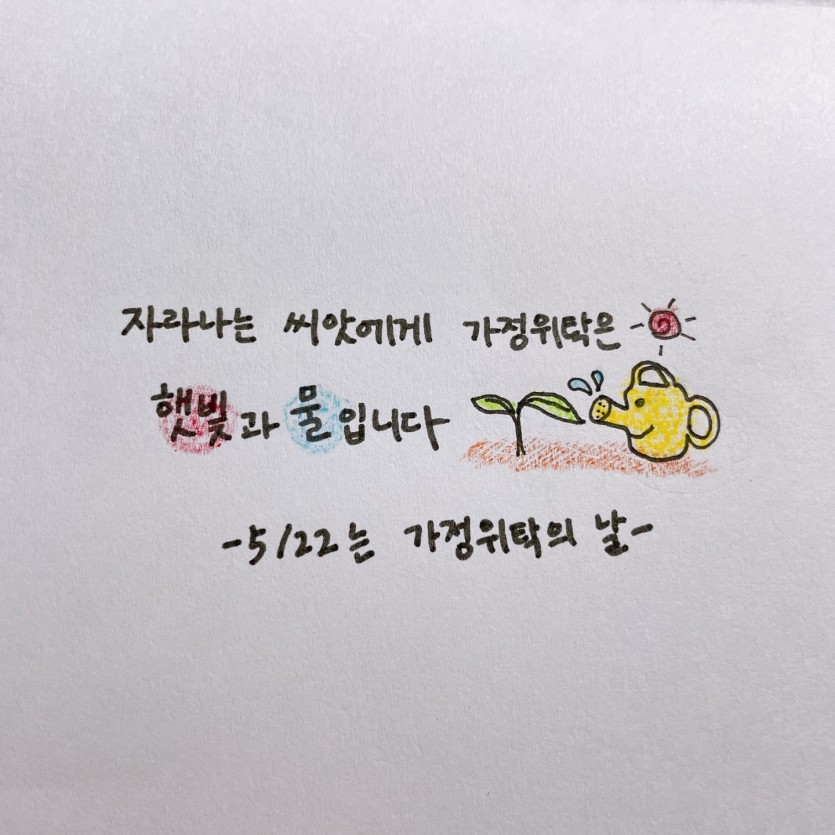 자라나는 씨앗에게 가정위탁은
햇빛과 물입니다
-5/22는 가정위탁의 날-